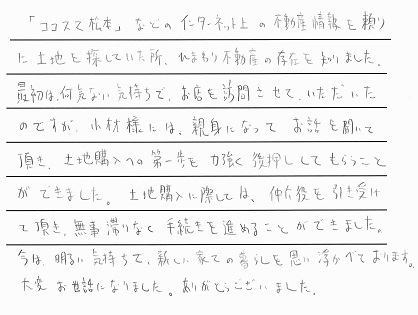 「ココスマ松本」などのインターネット上の不動産情報を頼り
に土地を探していた所、ひまわり不動産の存在を知りました。
最初は、何気ない気持ちで、お店を訪問させて、いただいた
のですが、小林様には、親身になって お話を聞いて
頂き、土地購入への第一歩を力強く後押ししてもらうこと
ができました。土地購入に際しては、仲介役を引き受け
て頂き、無事滞りなく手続きを進めることができました。
今は、明るい気持ちで、新しい家での暮らしを思い浮かべております。
大変お世話になりました。ありがとうございました。